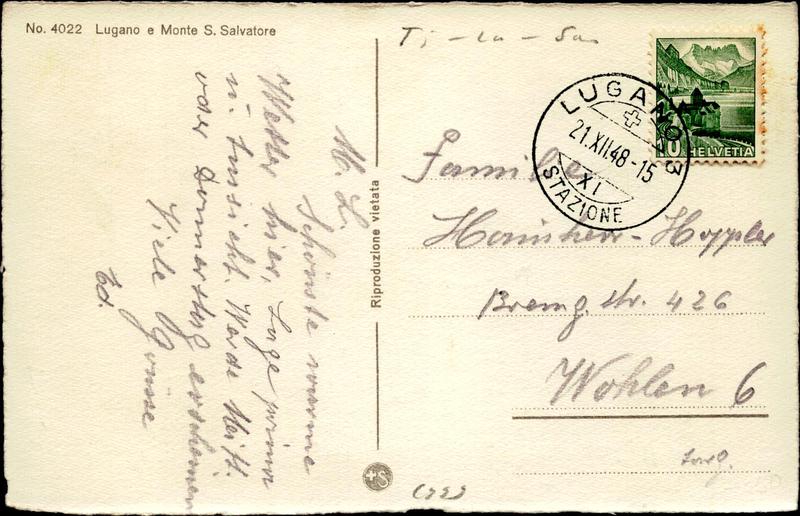 No. 4022 Lugano e Monte S. Salvatore
M. L.
Schönste warme
Wetter hier, Lage prima
u. Aussicht. Werde Mitt.
oder Donnerstag erscheinen
Viele Grüsse
Ed.
Riproduzione vietata
+S
Ti - La - Sa
LUGANO 3
21.XII.48-15
XI
STAZIONE
10 HELVETIA
Familie
Hoppler
Bremg. str. 426
Wohlen 6